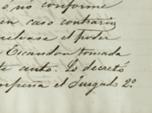 ó no conforme
en caso contrario
relevase el poder
Escandon tomada
te auto. Lo decretó
el Juzgado 2º